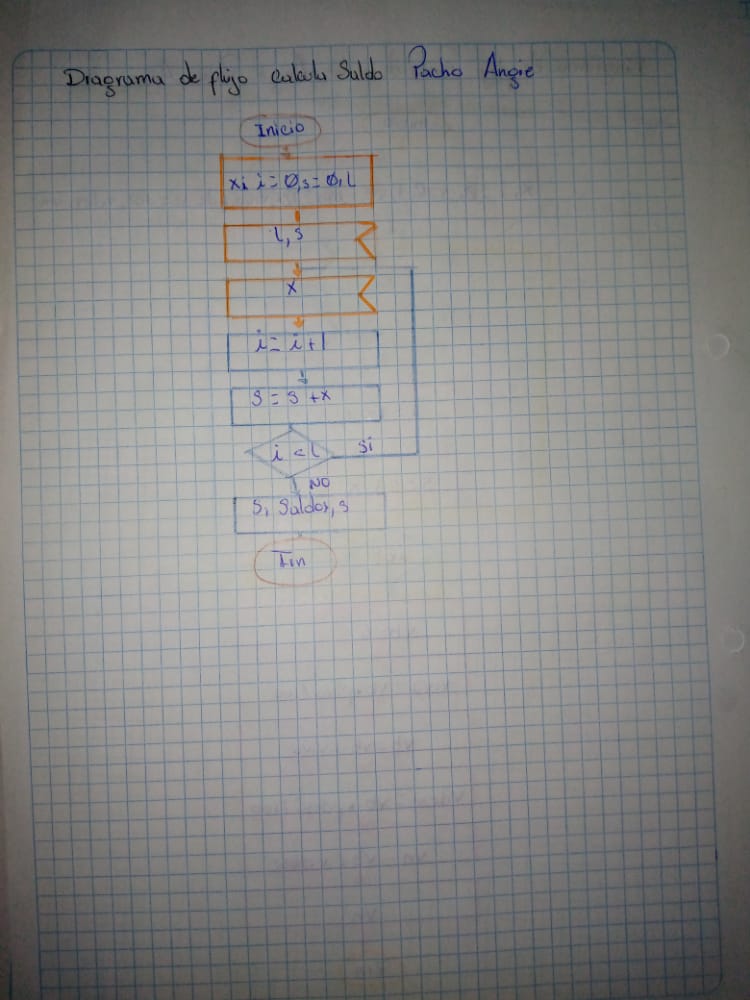 Diagrama de flijo calcula Saldo Pacho Angie
Inicio
x, i = 0, s = 0, L
L, s
x
i = i + 1
s = s + x
i < L
si
NO
S, Saldos, s
Fin